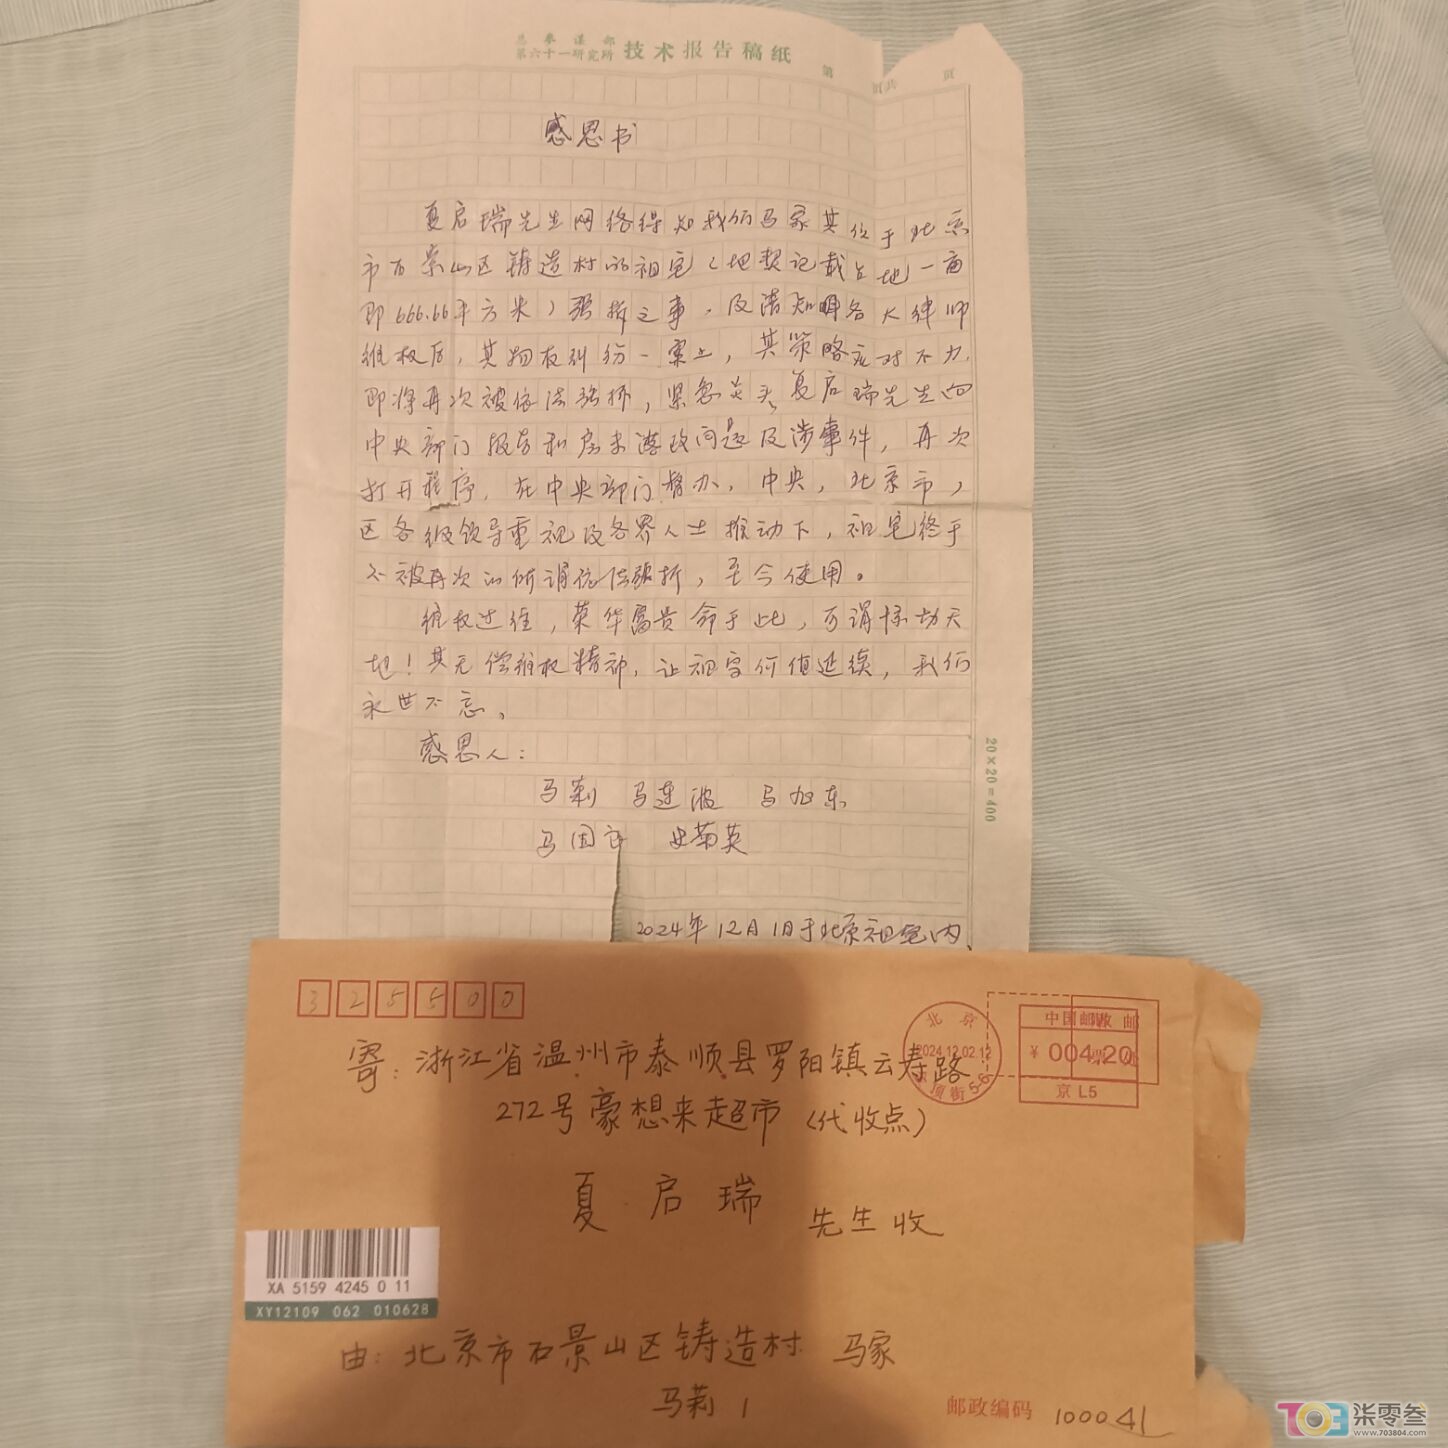 总参谋部
第六十一研究所 技术报告稿纸 第 页共 页
感恩书
夏启瑞先生网络得知我们马家其位于北京
市石景山区铸造村的祖宅（地契记载占地一亩
即666.66平方米）强拆之事，及请知晖各大律师
维权后，其物权纠纷一案上，其策略应对不力，
即将再次被依法强拆，紧急关头夏启瑞先生向
中央部门报告私房未遂改问题及涉事件，再次
打开程序，在中央部门督办，中央，北京市，
区各级领导重视及各界人士推动下，祖宅终于
不被再次的所谓依法强拆，至今使用。
维权过往，荣华富贵命于此，可谓惊动天
地！其无偿维权精神，让祖宅价值延续，我们
永世不忘。
感恩人：
马莉 马连波 马旭东
马国 史菊英
2024年12月1日于北京祖宅内
20×20=400
325500
寄：浙江省温州市泰顺县罗阳镇云寿路
272号豪想来超市（代收点）
夏启瑞 先生收
北京
2024.12.02.12
中国邮政
¥ 004.20
京 L5
XA 5159 4245 0 11
XY12109 062 010628
由：北京市石景山区铸造村 马家
马莉
邮政编码 100041
703 柒零叁
www.703804.com